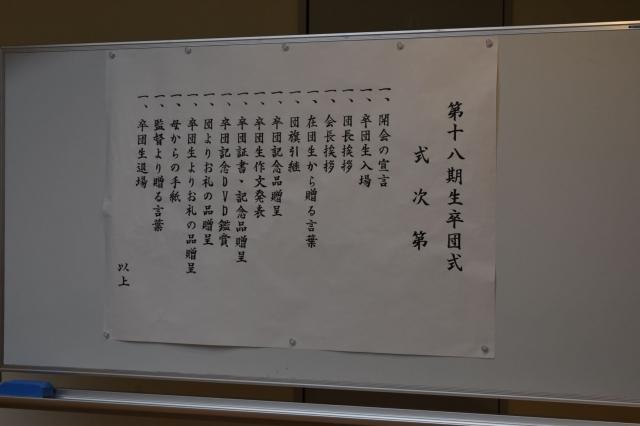 第十八期生卒団式
式次第
一、開会の宣言
一、卒団生入場
一、団長挨拶
一、会長挨拶
一、在団生から贈る言葉
一、団旗引継
一、卒団記念品贈呈
一、卒団生作文発表
一、卒団証書・記念品贈呈
一、卒団記念DVD鑑賞
一、団よりお礼の品贈呈
一、卒団生よりお礼の品贈呈
一、母からの手紙
一、監督より贈る言葉
一、卒団生退場
以上